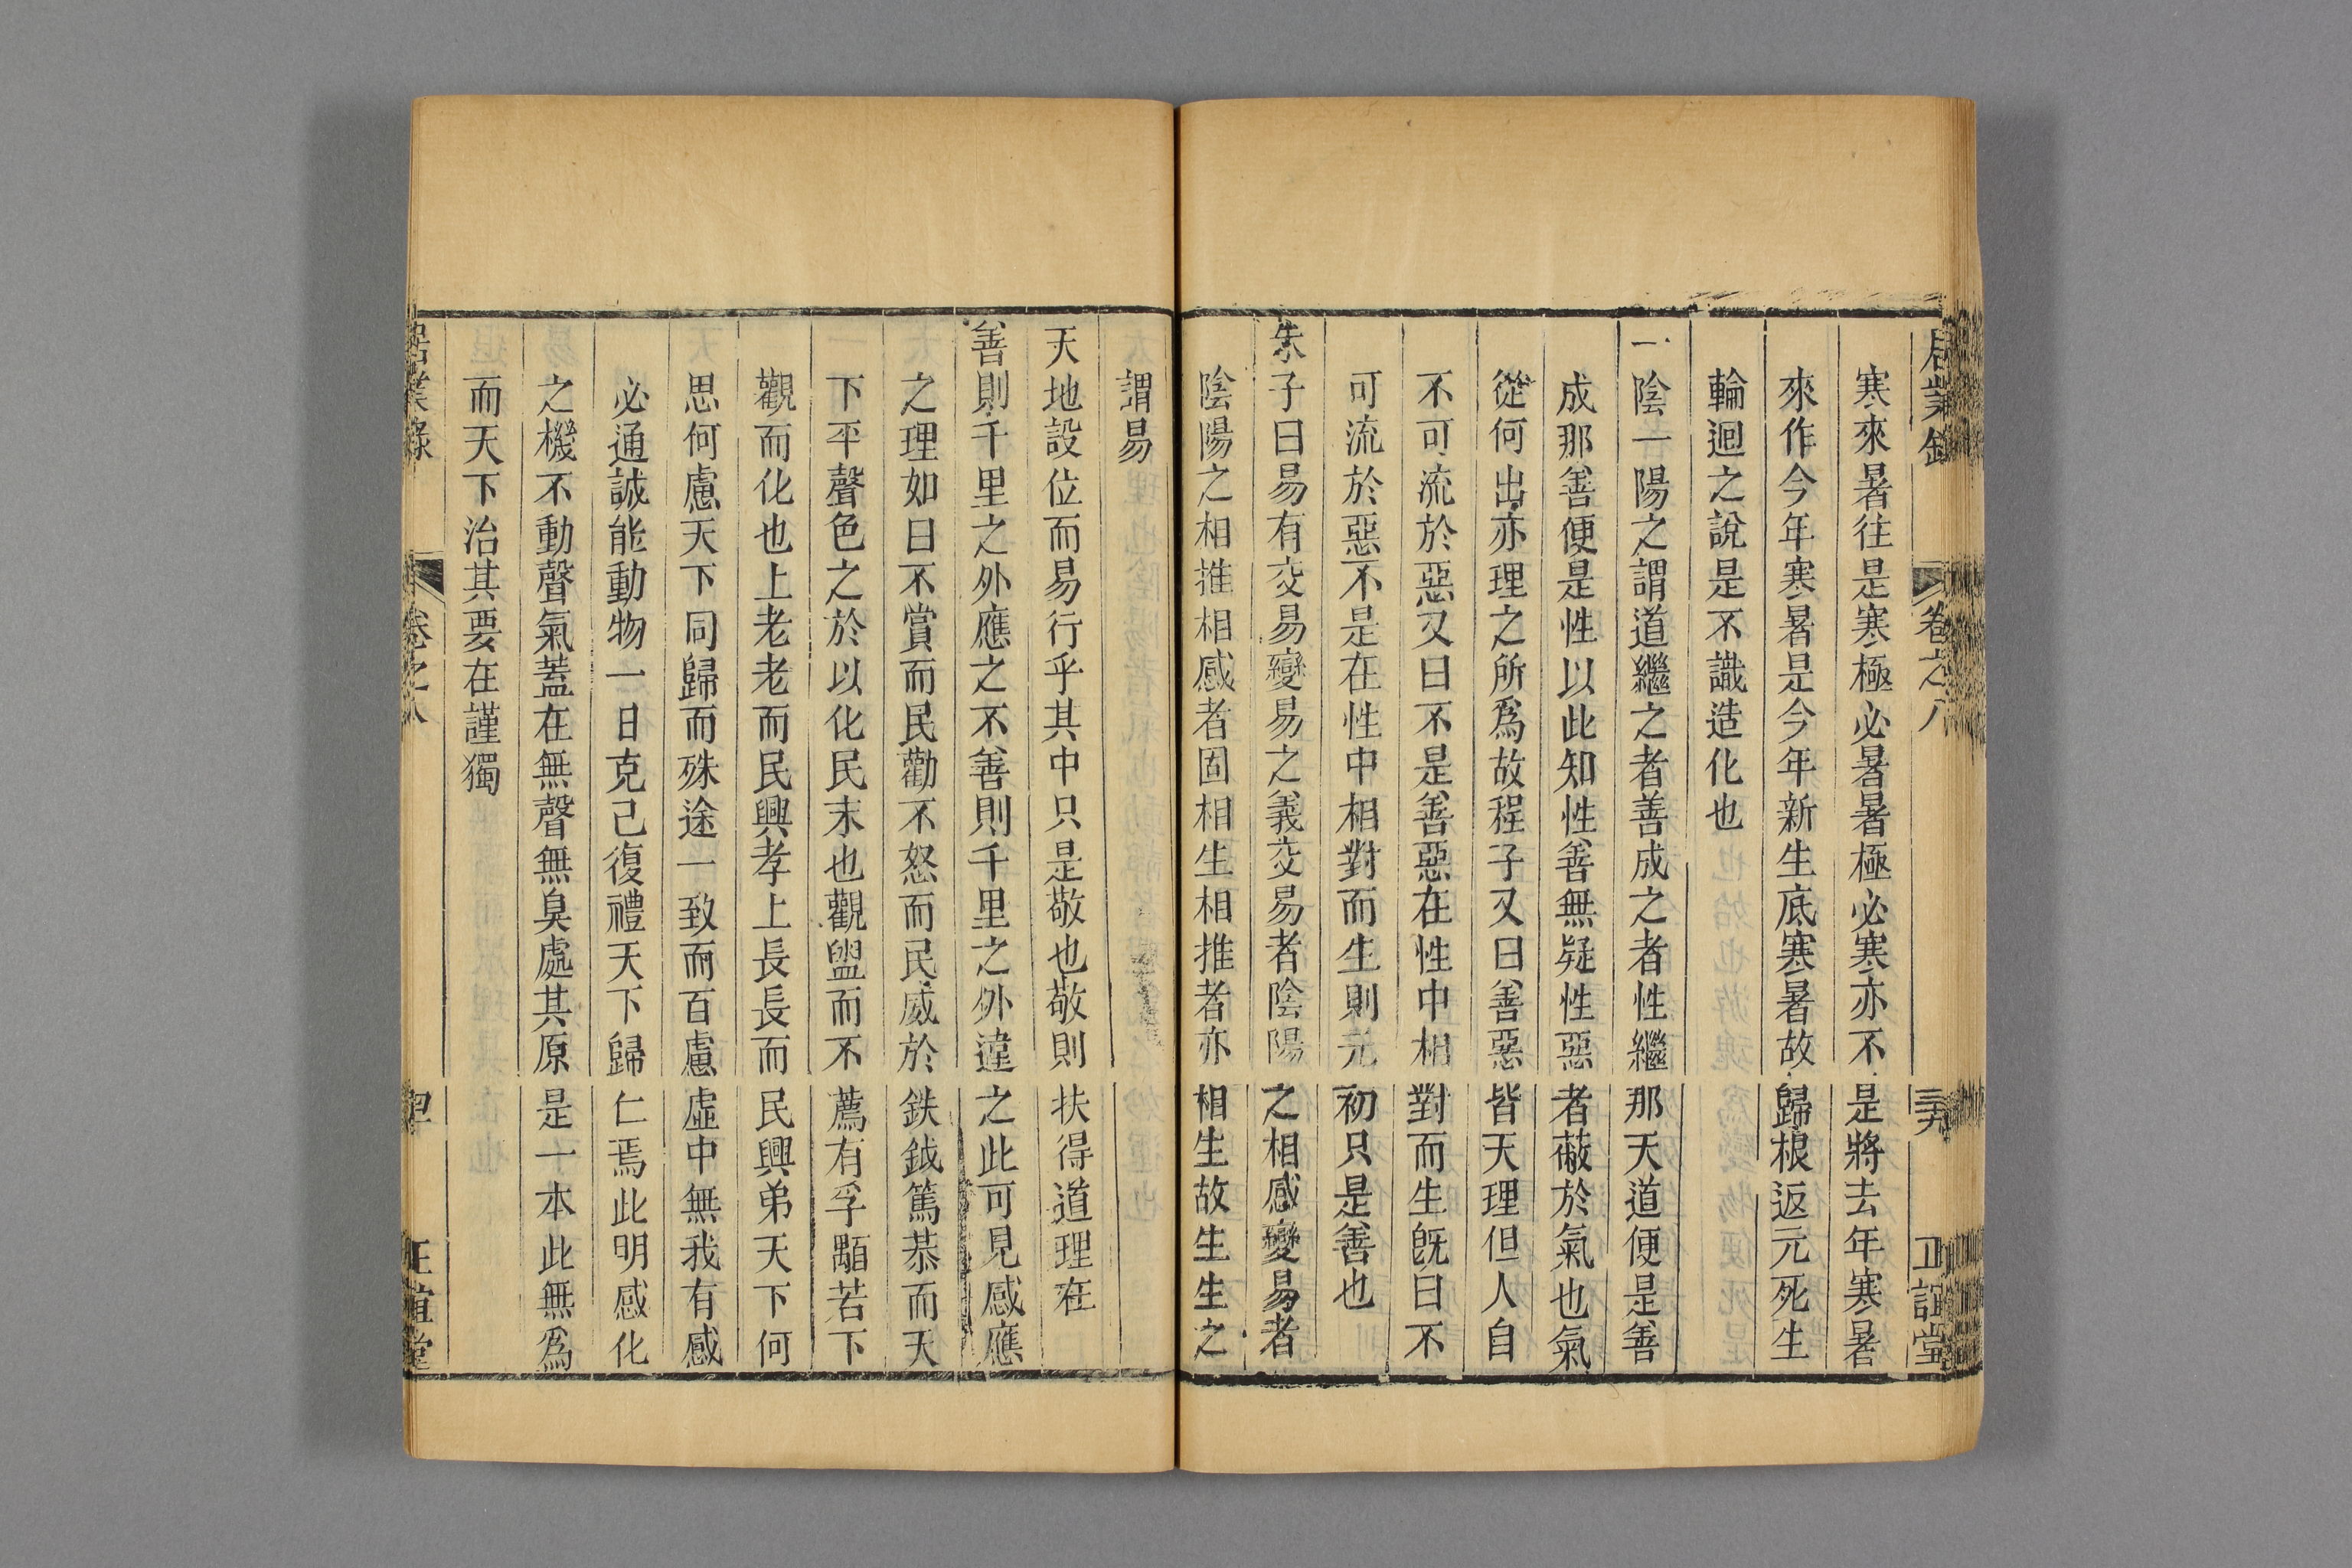 居業錄 卷之八 三九 正誼堂
寒來暑往是寒極必暑暑極必寒亦不是將去年寒暑
來作今年寒暑是今年新生底寒暑故歸根返元死生
輪迴之說是不識造化也
一陰一陽之謂道繼之者善成之者性繼那天道便是善
成那善便是性以此知性善無疑性惡者蔽於氣也氣
從何出亦理之所爲故程子又曰善惡皆天理但人自
不可流於惡又曰不是善惡在性中相對而生旣曰不
可流於惡不是在性中相對而生則元初只是善也
朱子曰易有交易變易之義交易者陰陽之相感變易者
陰陽之相推相感者固相生相推者亦相生故生生之
謂易
天地設位而易行乎其中只是敬也敬則扶得道理在
善則千里之外應之不善則千里之外違之此可見感應
之理如曰不賞而民勸不怒而民威於鈇鉞篤恭而天
下平聲色之於以化民末也觀盥而不薦有孚顒若下
觀而化也上老老而民興孝上長長而民興弟天下何
思何慮天下同歸而殊途一致而百慮虛中無我有感
必通誠能動物一日克己復禮天下歸仁焉此明感化
之機不動聲氣蓋在無聲無臭處其原是一本此無爲
而天下治其要在謹獨
居業錄 卷之八 四 正誼堂